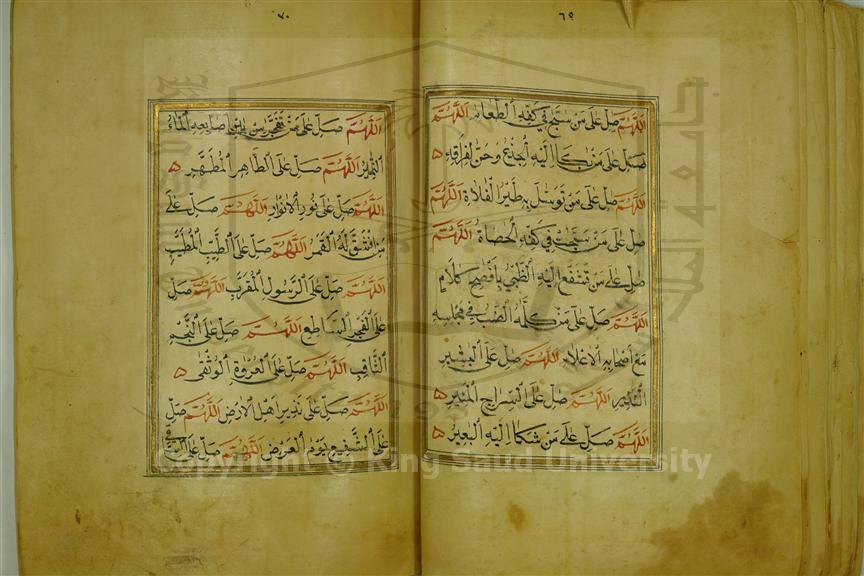 ٦٩
اَللّٰهُمَّ صَلِّ عَلٰى مَنْ سَبَّحَ فِي كَفِّهِ الطَّعَامُ اَللّٰهُمَّ
صَلِّ عَلٰى مَنْ بَكَا اِلَيْهِ الْجِذْعُ وَحَنَّ لِفِرَاقِهِ ۵
اَللّٰهُمَّ صَلِّ عَلٰى مَنْ تَوَسَّلَ بِهِ طَيْرُ الْفَلَاةِ اَللّٰهُمَّ
صَلِّ عَلٰى مَنْ سَبَّحَتْ فِي كَفِّهِ الْحَصَاةُ اَللّٰهُمَّ
صَلِّ عَلٰى مَنْ تَشَفَّعَ اِلَيْهِ الظَّبْيُ بِاَفْصَحِ كَلَامٍ
اَللّٰهُمَّ صَلِّ عَلٰى مَنْ كَلَّمَهُ الضَّبُّ فِي مَجْلِسِهِ
مَعَ اَصْحَابِهِ الْاَعْلَامِ اَللّٰهُمَّ صَلِّ عَلَى الْبَشِيرِ
النَّذِيرِ اَللّٰهُمَّ صَلِّ عَلَى السِّرَاجِ الْمُنِيرِ ۵
اَللّٰهُمَّ صَلِّ عَلٰى مَنْ شَكَا اِلَيْهِ الْبَعِيرُ ۵
٧٠
اَللّٰهُمَّ صَلِّ عَلٰى مَنْ تَفَجَّرَ مِنْ بَيْنِ اَصَابِعِهِ الْمَاءُ
النَّمِيرُ اَللّٰهُمَّ صَلِّ عَلَى الطَّاهِرِ الْمُطَهَّرِ ۵
اَللّٰهُمَّ صَلِّ عَلٰى نُورِ الْاَنْوَارِ اَللّٰهُمَّ صَلِّ عَلٰى
مَنِ انْشَقَّ لَهُ الْقَمَرُ اَللّٰهُمَّ صَلِّ عَلَى الطَّيِّبِ الْمُطَيَّبِ
اَللّٰهُمَّ صَلِّ عَلَى الرَّسُولِ الْمُقَرَّبِ اَللّٰهُمَّ صَلِّ
عَلَى الْفَجْرِ السَّاطِعِ اَللّٰهُمَّ صَلِّ عَلَى النَّجْمِ
الثَّاقِبِ اَللّٰهُمَّ صَلِّ عَلَى الْعُرْوَةِ الْوُثْقٰى ۵
اَللّٰهُمَّ صَلِّ عَلٰى نَذِيرِ اَهْلِ الْاَرْضِ اَللّٰهُمَّ صَلِّ
عَلَى الشَّفِيعِ يَوْمَ الْعَرْضِ اَللّٰهُمَّ صَلِّ عَلَى السَّاقِي
Copyright © King Saud University